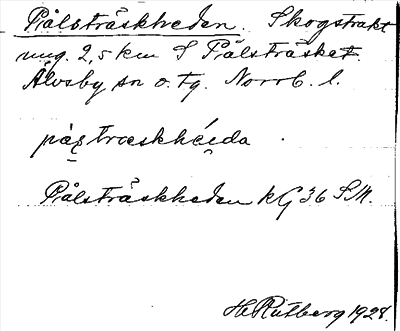 Pålsträskheden. Skogstrakt
ung. 2,5 km S Pålsträsket.
Älvsby sn o. tg. Norrb. l.
påstræskhéida.
Pålsträskheden kG 36 SM.
H. Rutberg 1928.